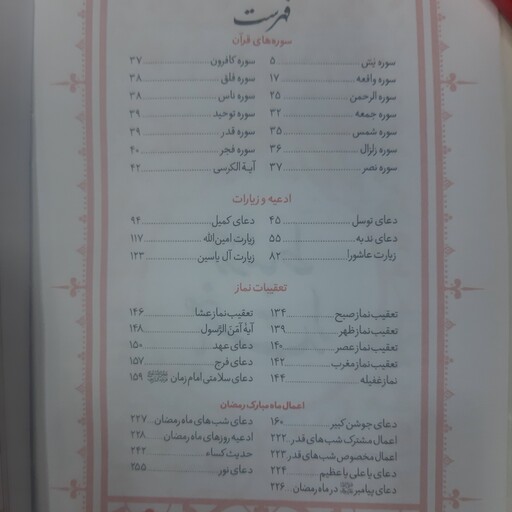 فهرست
سوره‌های قرآن
سوره یس ۵
سوره واقعه ۱۷
سوره الرحمن ۲۵
سوره جمعه ۳۲
سوره شمس ۳۵
سوره زلزال ۳۶
سوره نصر ۳۷
سوره کافرون ۳۷
سوره فلق ۳۸
سوره ناس ۳۸
سوره توحید ۳۹
سوره قدر ۳۹
سوره فجر ۴۰
آیة الکرسی ۴۲
ادعیه و زیارات
دعای توسل ۴۵
دعای ندبه ۵۵
زیارت عاشورا ۸۲
دعای کمیل ۹۴
زیارت امین‌الله ۱۱۷
زیارت آل یاسین ۱۲۳
تعقیبات نماز
تعقیب نماز صبح ۱۳۴
تعقیب نماز ظهر ۱۳۹
تعقیب نماز عصر ۱۴۰
تعقیب نماز مغرب ۱۴۲
نماز غفیله ۱۴۴
تعقیب نماز عشا ۱۴۶
آیة آمَنَ الرَّسول ۱۴۸
دعای عهد ۱۵۰
دعای فرج ۱۵۷
دعای سلامتی امام زمان ۱۵۹
اعمال ماه مبارک رمضان
دعای جوشن کبیر ۱۶۰
اعمال مشترک شب‌های قدر ۲۲۲
اعمال مخصوص شب‌های قدر ۲۲۳
دعای یا علی یا عظیم ۲۲۴
دعای پیامبر ﷺ در ماه رمضان ۲۲۶
دعای شب‌های ماه رمضان ۲۲۷
ادعیه روزهای ماه رمضان ۲۲۸
حدیث کساء ۲۴۲
دعای نور ۲۵۵